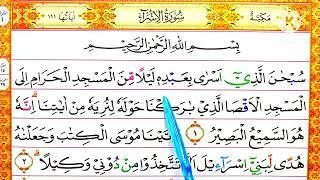 مَكِّيَّة سُورَةُ الْإِسْرَاء اٰيَاتُهَا ١١١
بِسْمِ اللّٰهِ الرَّحْمٰنِ الرَّحِيْمِ
سُبْحٰنَ الَّذِيْٓ اَسْرٰى بِعَبْدِهٖ لَيْلًا مِّنَ الْمَسْجِدِ الْحَرَامِ اِلَى
الْمَسْجِدِ الْاَقْصَا الَّذِيْ بٰرَكْنَا حَوْلَهٗ لِنُرِيَهٗ مِنْ اٰيٰتِنَا اِنَّهٗ
هُوَ السَّمِيْعُ الْبَصِيْرُ ١ تَيْنَا مُوْسَى الْكِتٰبَ وَجَعَلْنٰهُ
هُدًى لِّبَنِيْٓ اِسْرَآءِيْلَ تَتَّخِذُوْا مِنْ دُوْنِيْ وَكِيْلًا ٢